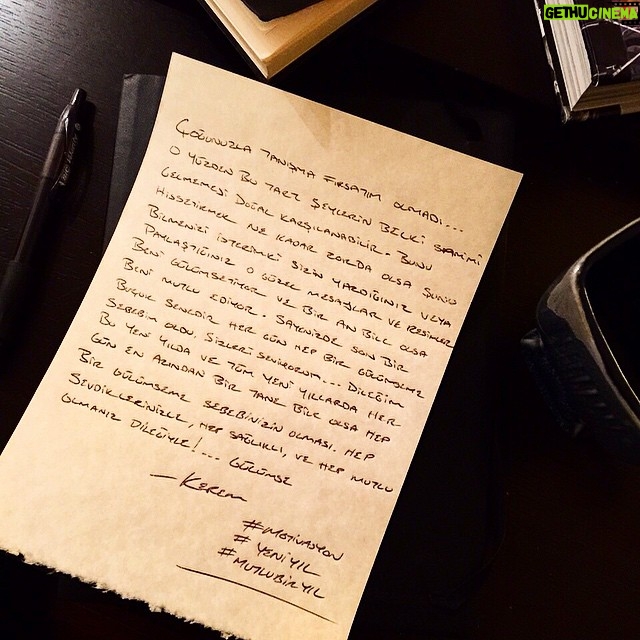 GETHUCINEMA
ÇOĞUNUZLA TANIŞMA FIRSATIM OLMADI...
O YÜZDEN BU TARZ ŞEYLERİN BELKİ SAMİMİ
GELMEMESİ DOĞAL KARŞILANABİLİR. BUNU
HİSSETİRMEK NE KADAR ZORDA OLSA ŞUNU
BİLMENİZİ İSTERİMKİ SİZİN YAZDIĞINIZ VEYA
PAYLAŞTIĞINIZ O GÜZEL MESAJLAR VE RESİMLER
BENİ GÜLÜMSETİYOR VE BİR AN BİLE OLSA
BENİ MUTLU EDİYOR. SAYENİZDE SON BİR
BUÇUK SENEDİR HER GÜN HEP BİR GÜLÜMSEME
SEBEBİM OLDU. SİZLERİ SEVİYORUM... DİLEĞİM
BU YENİ YILDA VE TÜM YENİ YILLARDA HER
GÜN EN AZINDAN BİR TANE BİLE OLSA HEP
BİR GÜLÜMSEME SEBEBİNİZİN OLMASI. HEP
SEVDİKLERİNİZLE, HEP SAĞLIKLI, VE HEP MUTLU
OLMANIZ DİLEĞİYLE!... GÜLÜMSE
- KEREM
#MOTİVASYON
# YENİYIL
#MUTLUBİRYIL